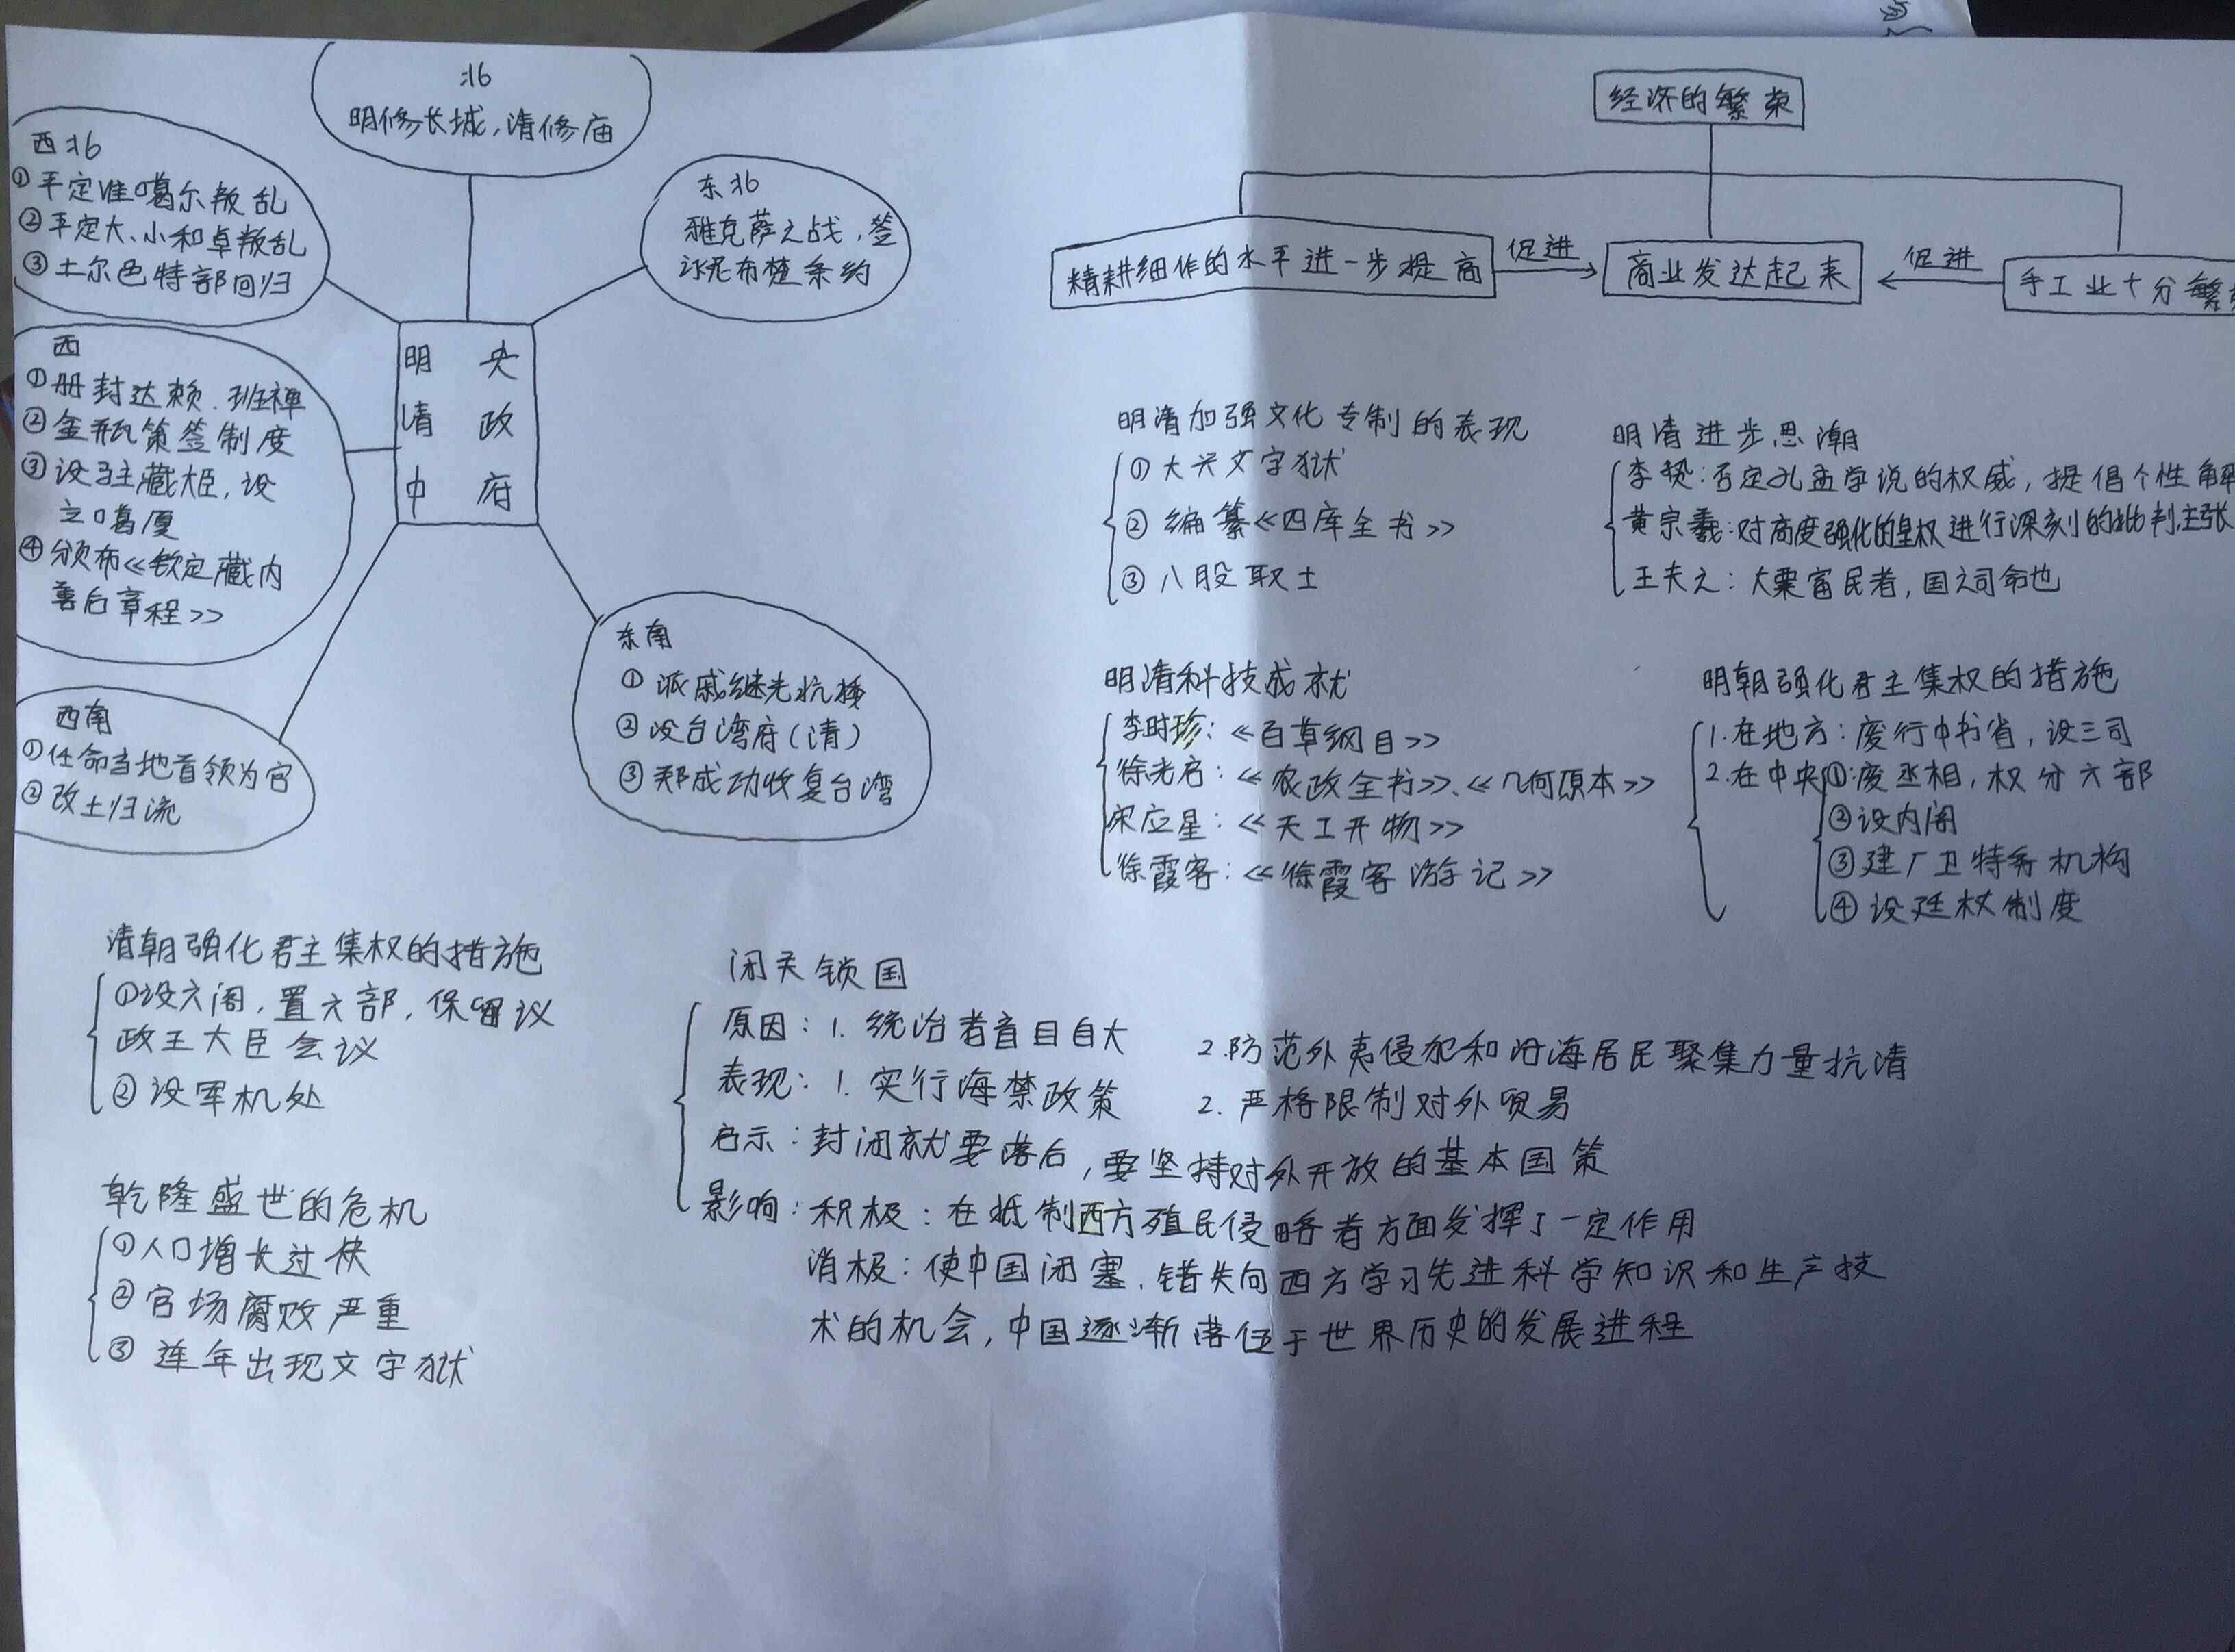 北
明修长城,清修庙
西北
①平定准噶尔叛乱
②平定大、小和卓叛乱
③土尔色特部回归
东北
雅克萨之战,签
尼布楚条约
西
①册封达赖、班禅
②金瓶策签制度
③设驻藏大臣,设
立噶厦
④颁布《钦定藏内
善后章程》
明清中央政府
西南
①任命当地首领为官
②改土归流
东南
①派戚继光抗倭
②设台湾府(清)
③郑成功收复台湾
经济的繁荣
精耕细作的水平进一步提高
促进
商业发达起来
促进
手工业十分繁
明清加强文化专制的表现
①大兴文字狱
②编纂《四库全书》
③八股取士
明清进步思潮
李贽:否定孔孟学说的权威,提倡个性解
黄宗羲:对高度强化的皇权进行深刻的批判,主张
王夫之:大粟富民者,国之司命也
明清科技成就
李时珍:《百草纲目》
徐光启:《农政全书》、《几何原本》
宋应星:《天工开物》
徐霞客:《徐霞客游记》
明朝强化君主集权的措施
1.在地方:废行中书省,设三司
2.在中央①:废丞相,权分六部
②设内阁
③建厂卫特务机构
④设廷杖制度
清朝强化君主集权的措施
①设六阁,置六部,保留议
政王大臣会议
②设军机处
乾隆盛世的危机
①人口增长过快
②官场腐败严重
③连年出现文字狱
闭关锁国
原因:1.统治者盲目自大 2.防范外夷侵犯和沿海居民聚集力量抗清
表现:1.实行海禁政策 2.严格限制对外贸易
启示:封闭就要落后,要坚持对外开放的基本国策
影响:积极:在抵制西方殖民侵略者方面发挥了一定作用
消极:使中国闭塞,错失向西方学习先进科学知识和生产技
术的机会,中国逐渐落伍于世界历史的发展进程